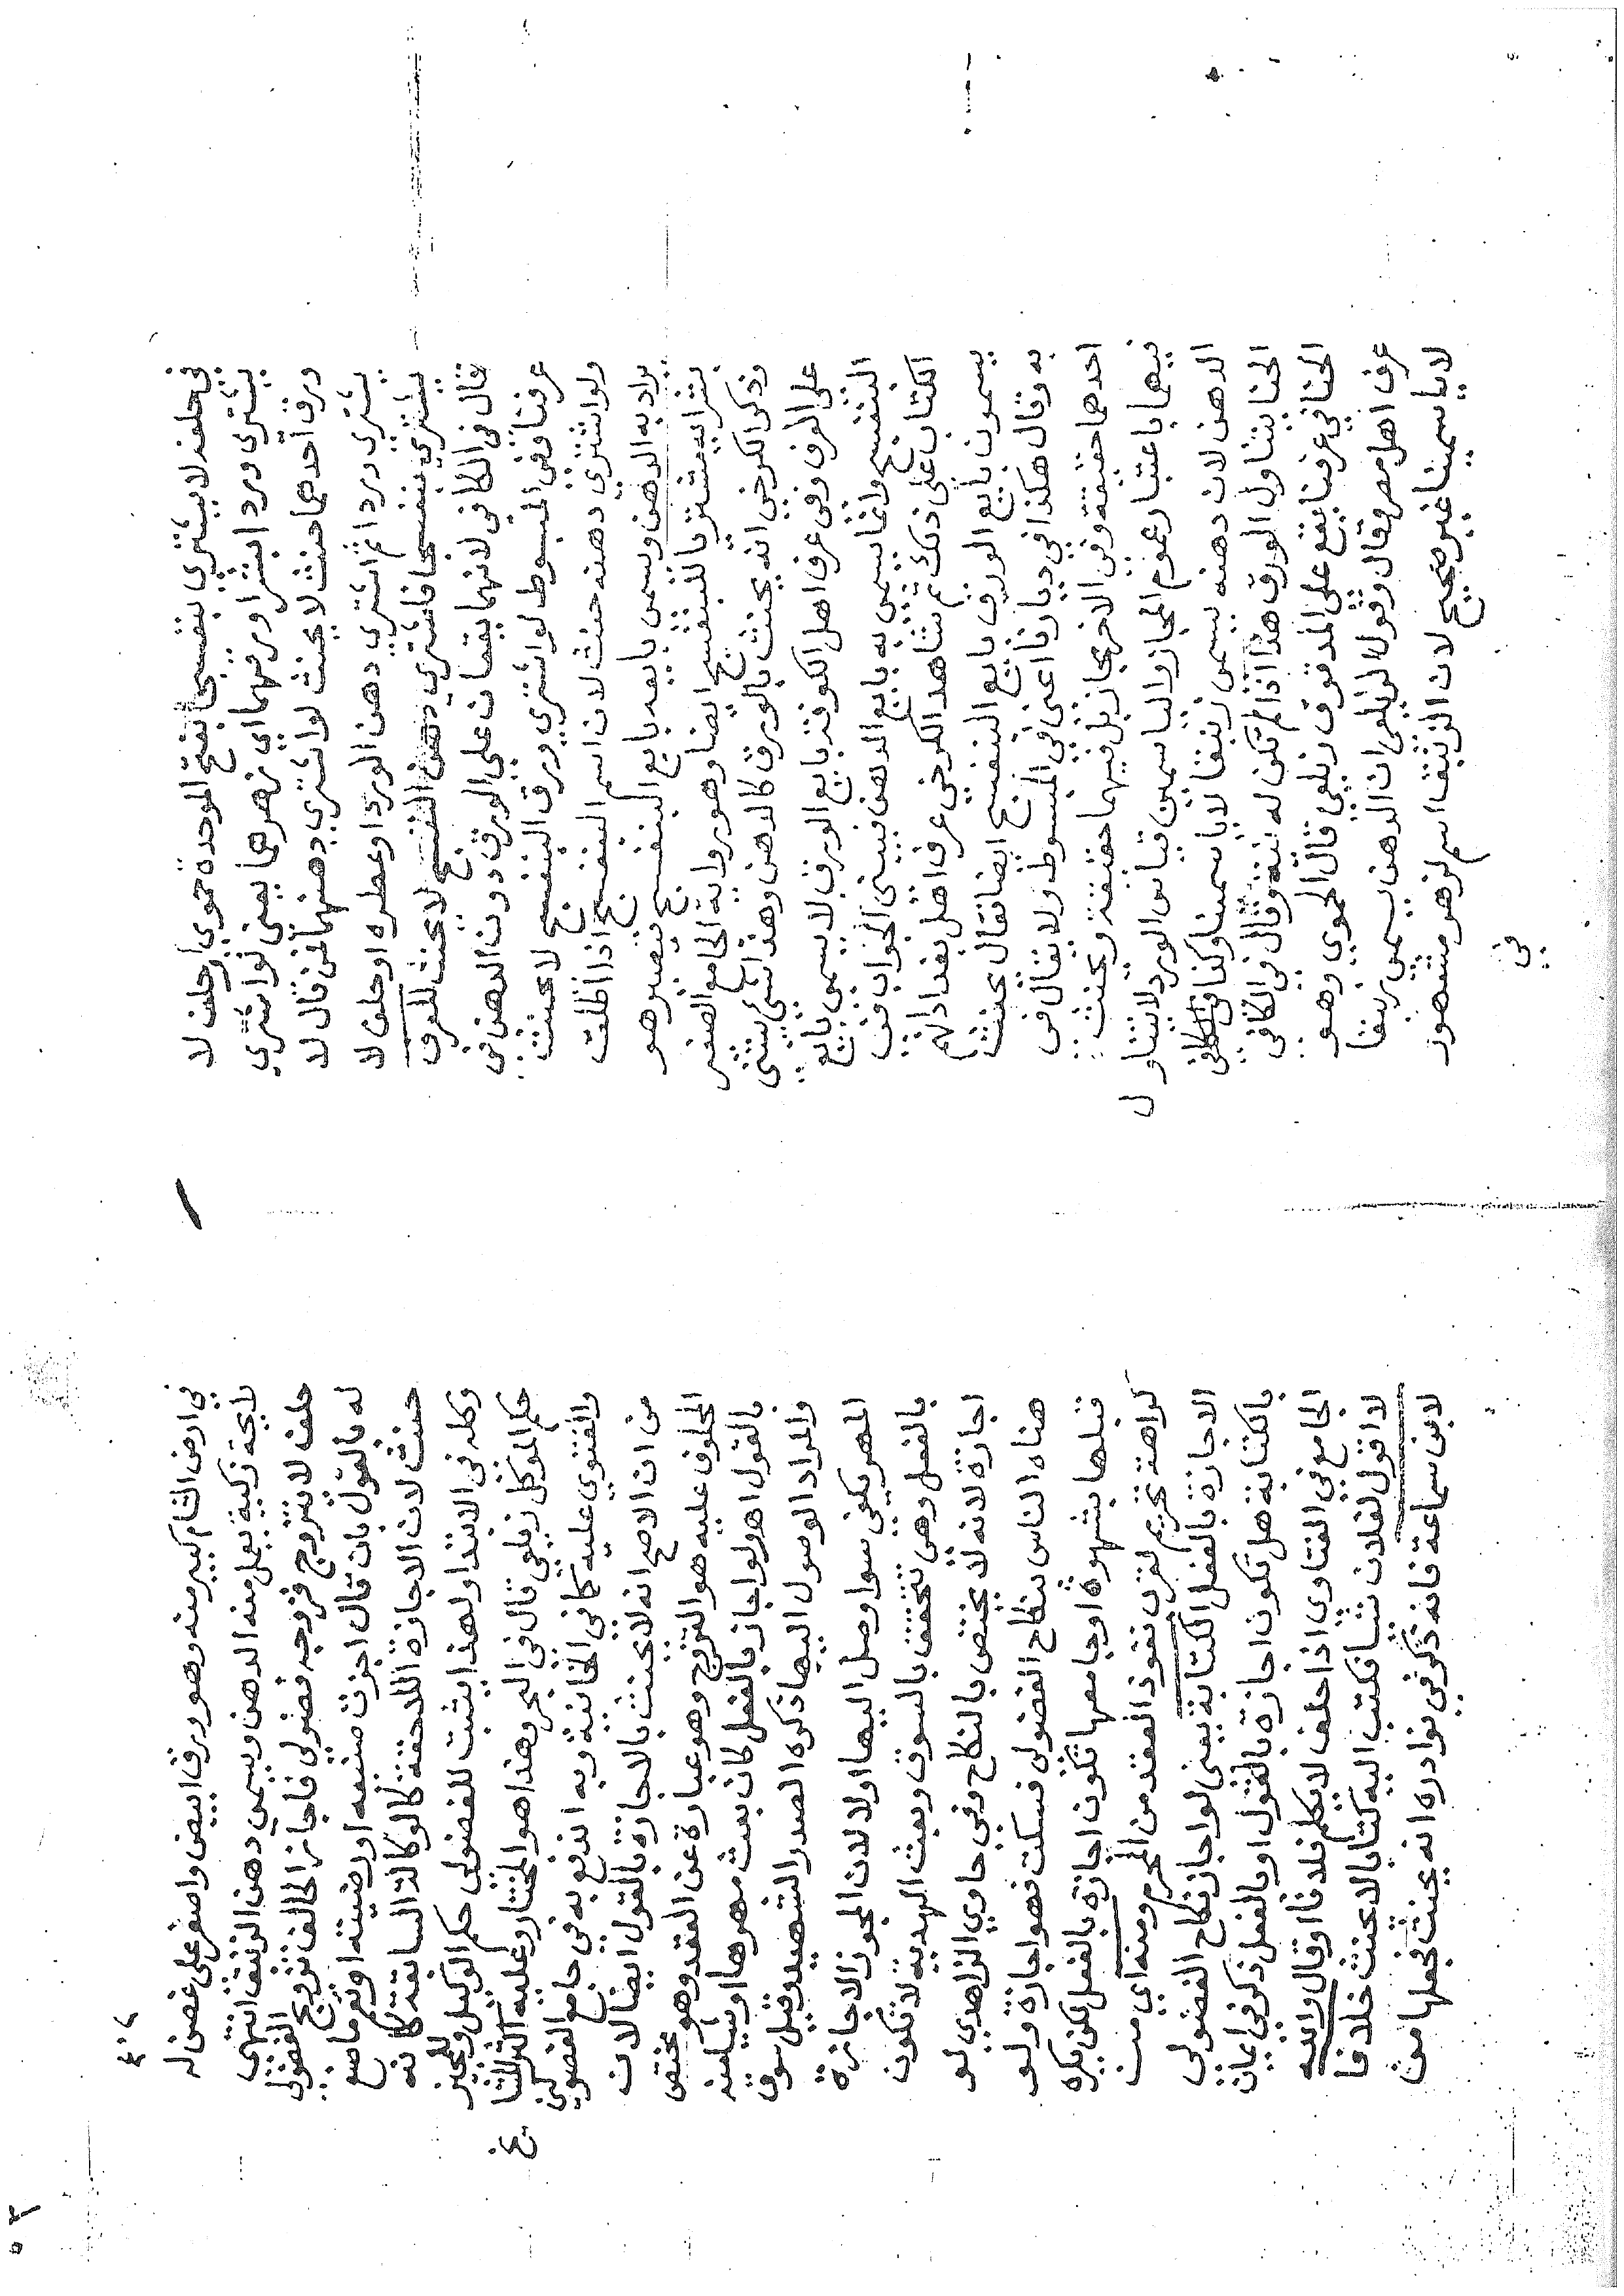 في حلفه لا يشتري بنفسجا بفتح الموحدة حموي او حلف لا
يشتري وردا بشرا ورقهما اي زهرهما يعني لو اشتري
ورق احدهما حنث لا يحنث لو اشتري دهنهما فمن قال لا
يشتري وردا ثم اشتري دهن الورد او عطره او حلف لا
يشتري بنفسجا فاشتري دهن البنفسج لا يحنث للعرف
قال في الكافي لانهما يقعان على الورق دون الدهن في
عرفنا وفي المبسوط لو اشتري ورق البنفسج لا يحنث
ولو اشتري دهنه حنث لان اسم البنفسج اذا اطلق
يراد به الدهن ويسمى بايعه بايع البنفسج فيصير هو
بشرايه مشتريا للبنفسج ايضا وهو رواية الجامع الصغير
وذكر الكرخي انه يحنث بالورق كالدهن وهذا شيء يبتنى
على العرف وفي عرف اهل الكوفة بايع الورق لا يسمى بايع
البنفسج وانما يسمى به بايع الدهن فبنى الجواب في
الكتاب على ذلك ثم شاهد الكرخي عرف اهل بغداد انهم
يسمون بايع الورق بايع البنفسج ايضا فقال يحنث
به وقال هكذا في ديارنا اعني في المبسوط ولا يقال في
احدهما حقيقة وفي الاخر مجاز بل فيهما حقيقة ويحنث
فيهما باعتبار عموم المجاز والياسمين قياس الورد لا يتناول
الدهن لان دهنه يسمى زنبقا لا ياسمينا وكذا في الكافي
الحنا يتناول الورق هذا اذا لم تكن له نية وقال في الكافي
الحنا في عرفنا يقع على المدقوق زيلعي قال الحموي وهو
عرف اهل مصر وقال وقول الزيلعي ان الدهن يسمى زنبقا
لا ياسمينا غير صحيح لان الزنبق اسم لزهر مشهور
في
في ارض الشام كبير منه وهو ورق ابيض واصفر على غصن له
رايحة زكية يعمل منه الدهن ويسمى دهن الزنبق انتهى
حلف لا يتزوج فزوجه فضولي فاجاز الحالف تزويج الفضولي
له بالقول بان قال اجزت صنيعه او رضيته او نعم ما صنع
حنث لان الاجازة اللاحقة كالوكالة السابقة كانه
وكله في الابتدا ولهذا يثبت للفضولي حكم الوكيل وللمجيز
حكم الموكل زيلعي قال في البحر وهذا هو المختار وعليه اكثر المشايخ
والفتوى عليه كما في الخانية وبه اندفع به في جامع الفصولين
من ان الاصح انه لا يحنث بالاجازة بالقول ايضا لان
المحلوف عليه هو التزوج وهو عبارة عن العقد وهو مختص
بالقول اهـ ولو اجاز بالفعل كان بعث مهرها او تسليمه
والمراد الوصول اليها ذكره الصدر الشهيد وقيل سوق
المهر يكفي سوا وصل اليها او لا لان المجوز الاجازة
بالفعل وهي تتحقق بالسوق وبعث الهدية لا تكون
اجازة لانه لا يختص بالنكاح وفي حاوي الزاهدي لو
هناه الناس بنكاح الفضولي فسكت فهو اجازة ولو
قبلها بشهوة او جامعها تكون اجازة بالفعل لكن يكره
كراهة تحريم لقرب نفوذ العقد من المحرم ومنه اي من
الاجازة بالفعل الكتابة يعني لو اجاز نكاح الفضولي
بالكتابة هل تكون اجازة بالقول او بالفعل ذكر في ايمان
الجامع في الفتاوى اذا حلف لا يكلم فلانا او قال والله
لا اقول لفلان شيا فكتب اليه كتابا لا يحنث خلافا
لابن سماعة فانه ذكر في نوادره انه يحنث فجعلها من